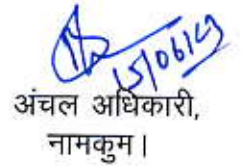 15/06/23
अंचल अधिकारी,
नामकुम।